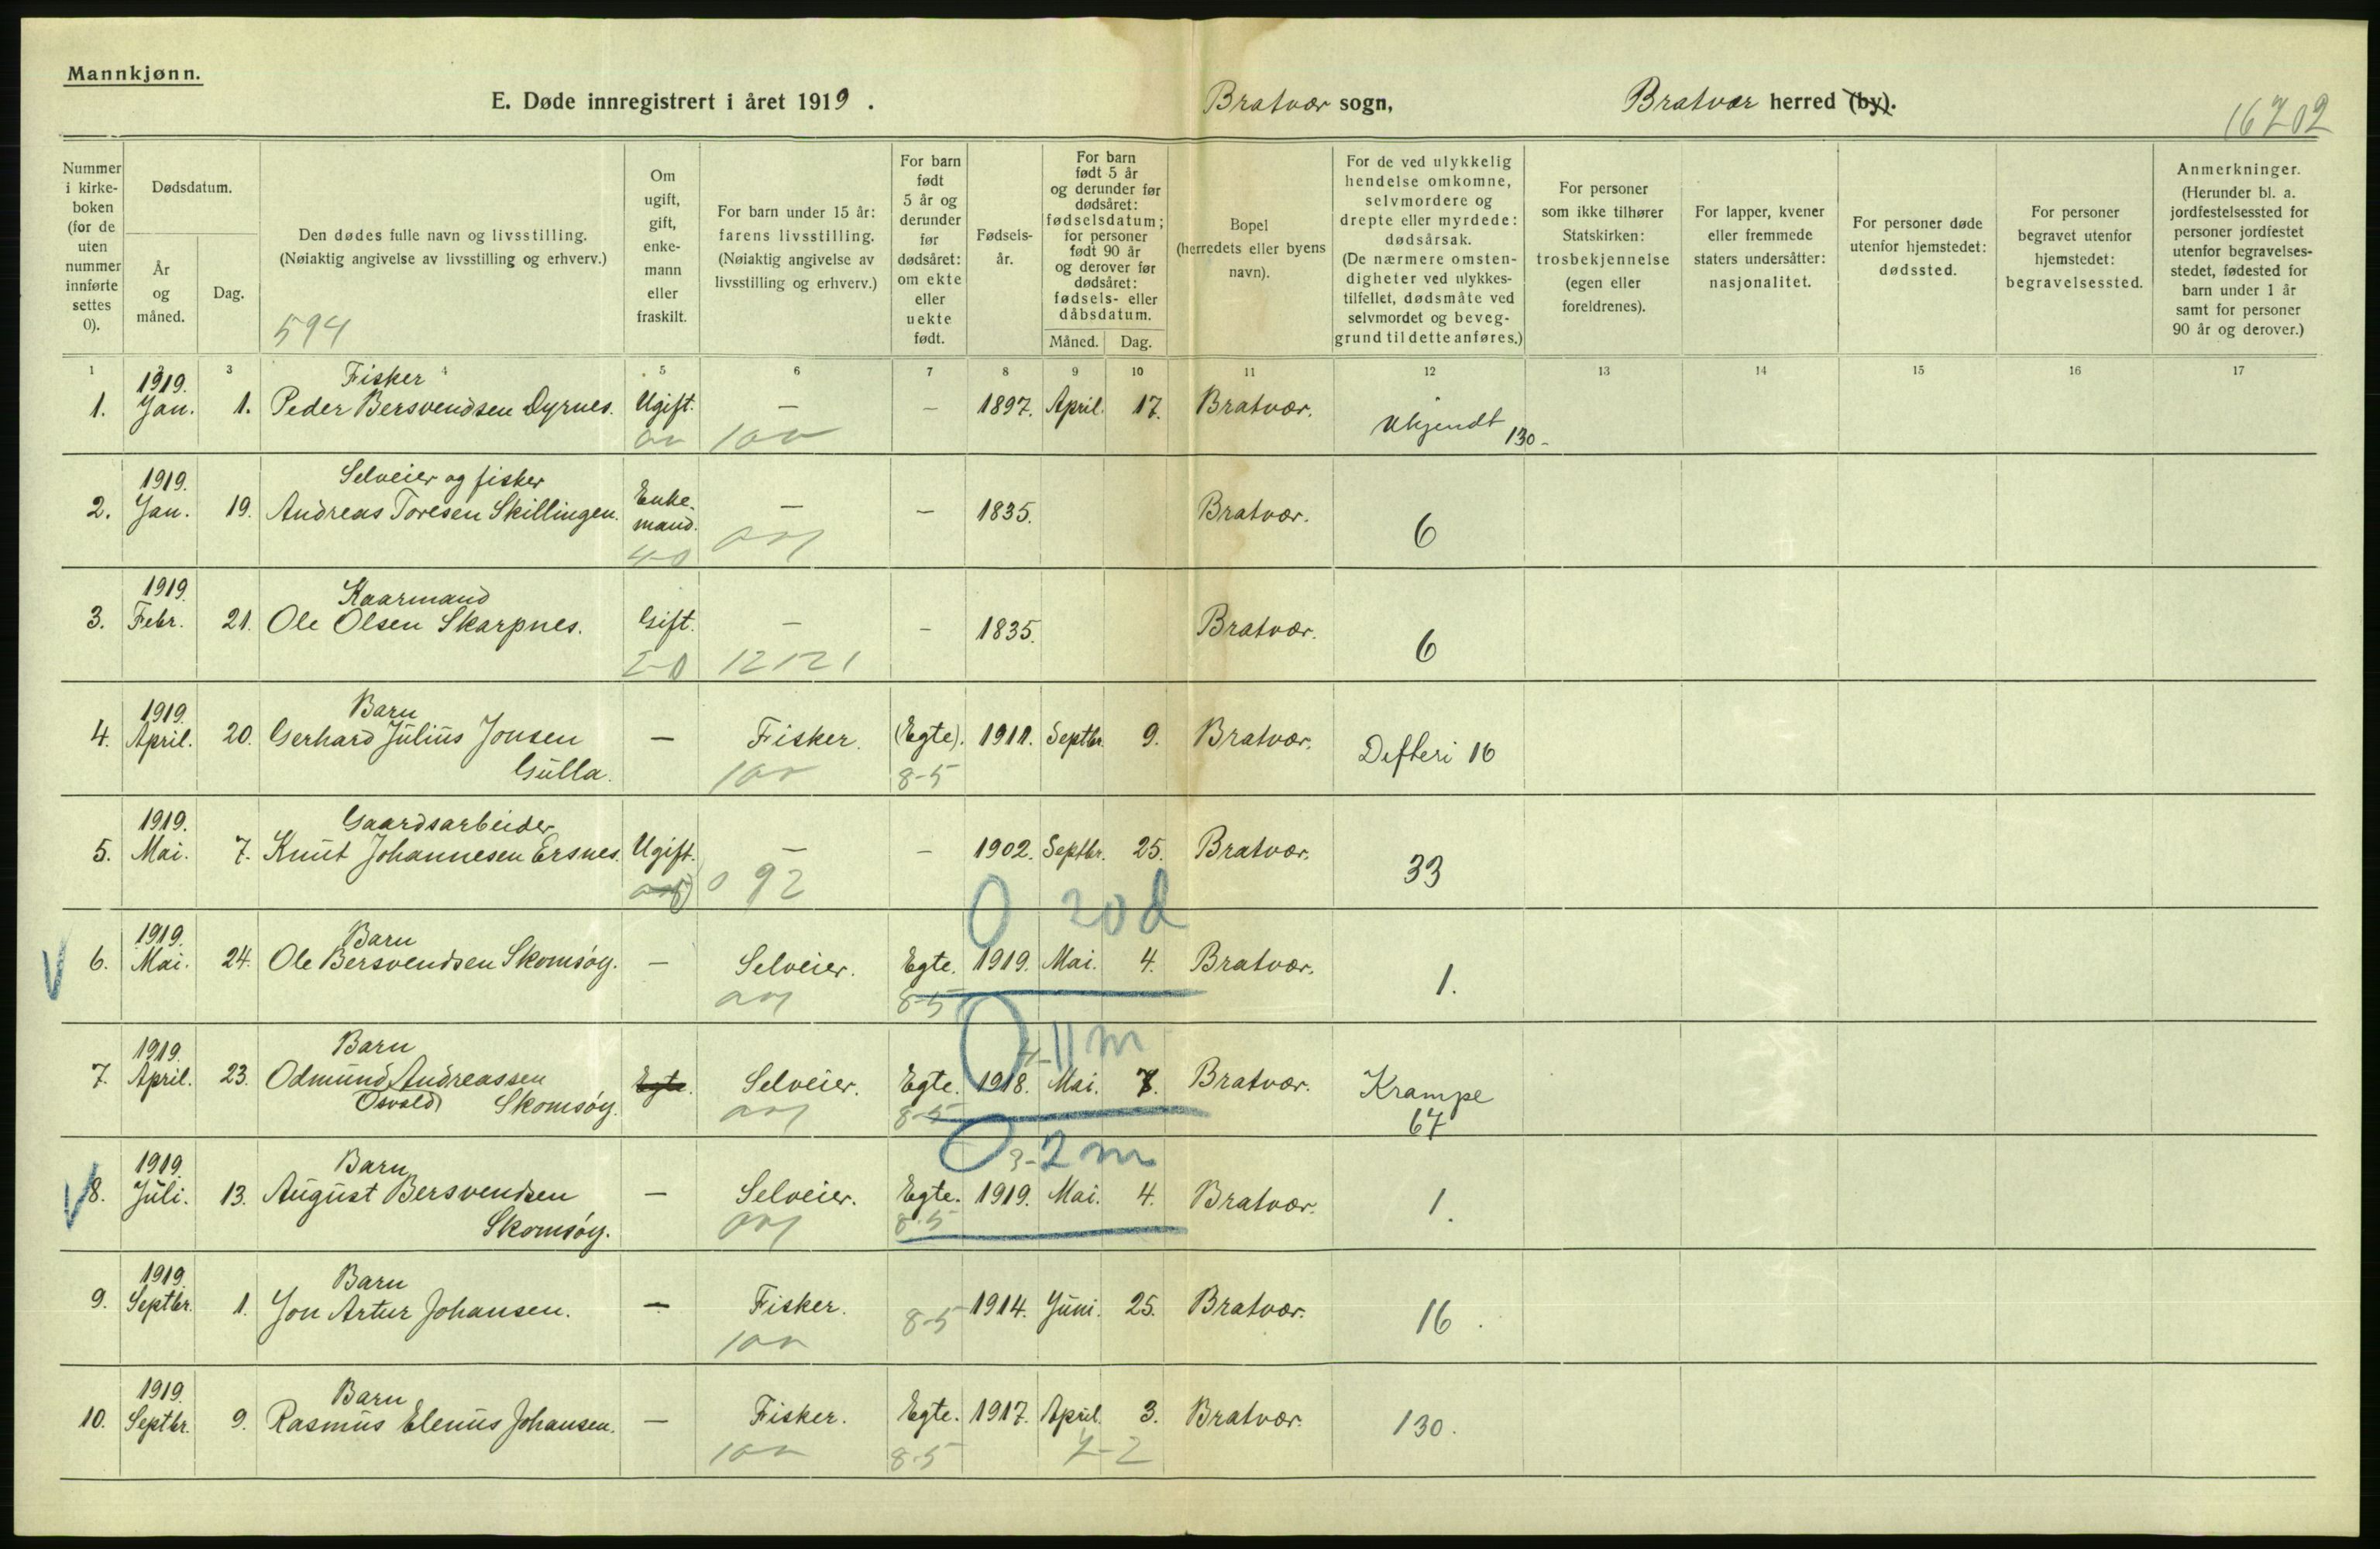 Mannkjønn.
E. Døde innregistrert i året 1919.
Bratvær sogn,
Bratvær herred (by).
16702
Nummer i kirke-boken (for de uten nummer innførte settes 0).
Dødsdatum.
År og måned.
Dag.
Den dødes fulle navn og livsstilling.
(Nøiaktig angivelse av livsstilling og erhverv.)
594
Om ugift, gift, enke-mann eller fraskilt.
For barn under 15 år: farens livsstilling.
(Nøiaktig angivelse av livsstilling og erhverv.)
For barn født 5 år og derunder før dødsåret: om ekte eller uekte født.
Fødsels-år.
For barn født 5 år og derunder før dødsåret: fødselsdatum; for personer født 90 år og derover før dødsåret: fødsels- eller dåbsdatum.
Måned. Dag.
Bopel (herredets eller byens navn).
For de ved ulykkelig hendelse omkomne, selvmordere og drepte eller myrdede: dødsårsak.
(De nærmere omsten-digheter ved ulykkes-tilfellet, dødsmåte ved selvmordet og beveg-grund til dette anføres.)
For personer som ikke tilhører Statskirken: trosbekjennelse (egen eller foreldrenes).
For lapper, kvener eller fremmede staters undersåtter: nasjonalitet.
For personer døde utenfor hjemstedet: dødssted.
For personer begravet utenfor hjemstedet: begravelsessted.
Anmerkninger.
(Herunder bl. a. jordfestelsessted for personer jordfestet utenfor begravelses-stedet, fødested for barn under 1 år samt for personer 90 år og derover.)
1 2 3 4 5 6 7 8 9 10 11 12 13 14 15 16 17
1919. Fisker
1. Jan. 1. Peder Bersvendsen Dyrnes. Ugift. — — 1897. April. 17. Bratvær. Ukjendt 130-
1919. Selveier og fisker
2. Jan. 19. Andreas Toresen Skillingen. Enke-mand. — — 1835. Bratvær. 6
4-0
1919. Kaarmand
3. Febr. 21. Ole Olsen Skarpnes. Gift. — — 1835. Bratvær. 6
12121
1919. Barn
4. April. 20. Gerhard Julius Jonsen — Fisker. (Egte). 1911. Septbr. 9. Bratvær. Defteri 16
Gulla. 8-5
1919. Gaardsarbeider
5. Mai. 7. Knut Johannesen Ersnes. Ugift. — — 1902. Septbr. 25. Bratvær. 33
092
0 20d
1919. Barn
6. Mai. 24. Ole Bersvendsen Skomsøy. — Selveier. Egte. 1919. Mai. 4. Bratvær. 1.
8-5
0 11m
1919. Barn
7. April. 23. Odmund Andreassen Egte. Selveier. Egte. 1918. Mai. 7. Bratvær. Krampe
Osvald Skomsøy. 8-5 67
0 3-2m
1919. Barn
8. Juli. 13. August Bersvendsen — Selveier. Egte. 1919. Mai. 4. Bratvær. 1.
Skomsøy. 8-5
1919. Barn
9. Septbr. 1. Jon Artur Johansen. — Fisker. 8-5 1914. Juni. 25. Bratvær. 16.
1919. Barn
10. Septbr. 9. Rasmus Elenus Johansen. — Fisker. Egte. 1917. April. 3. Bratvær. 130.
8-5 4-2